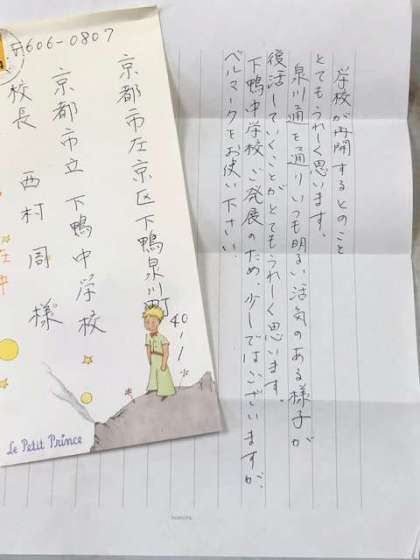 〒606-0807
京都市左京区下鴨泉川町
40-1
京都市立 下鴨中学校
校長 西村 周 様
在中
Le Petit Prince
学校が再開するとのこと
とてもうれしく思います。
泉川通を通りいつも明るい活気のある様子が
復活していくことがとてもうれしく思います。
下鴨中学校ご発展のため、少しではございますが、
ベルマークをお使い下さい。